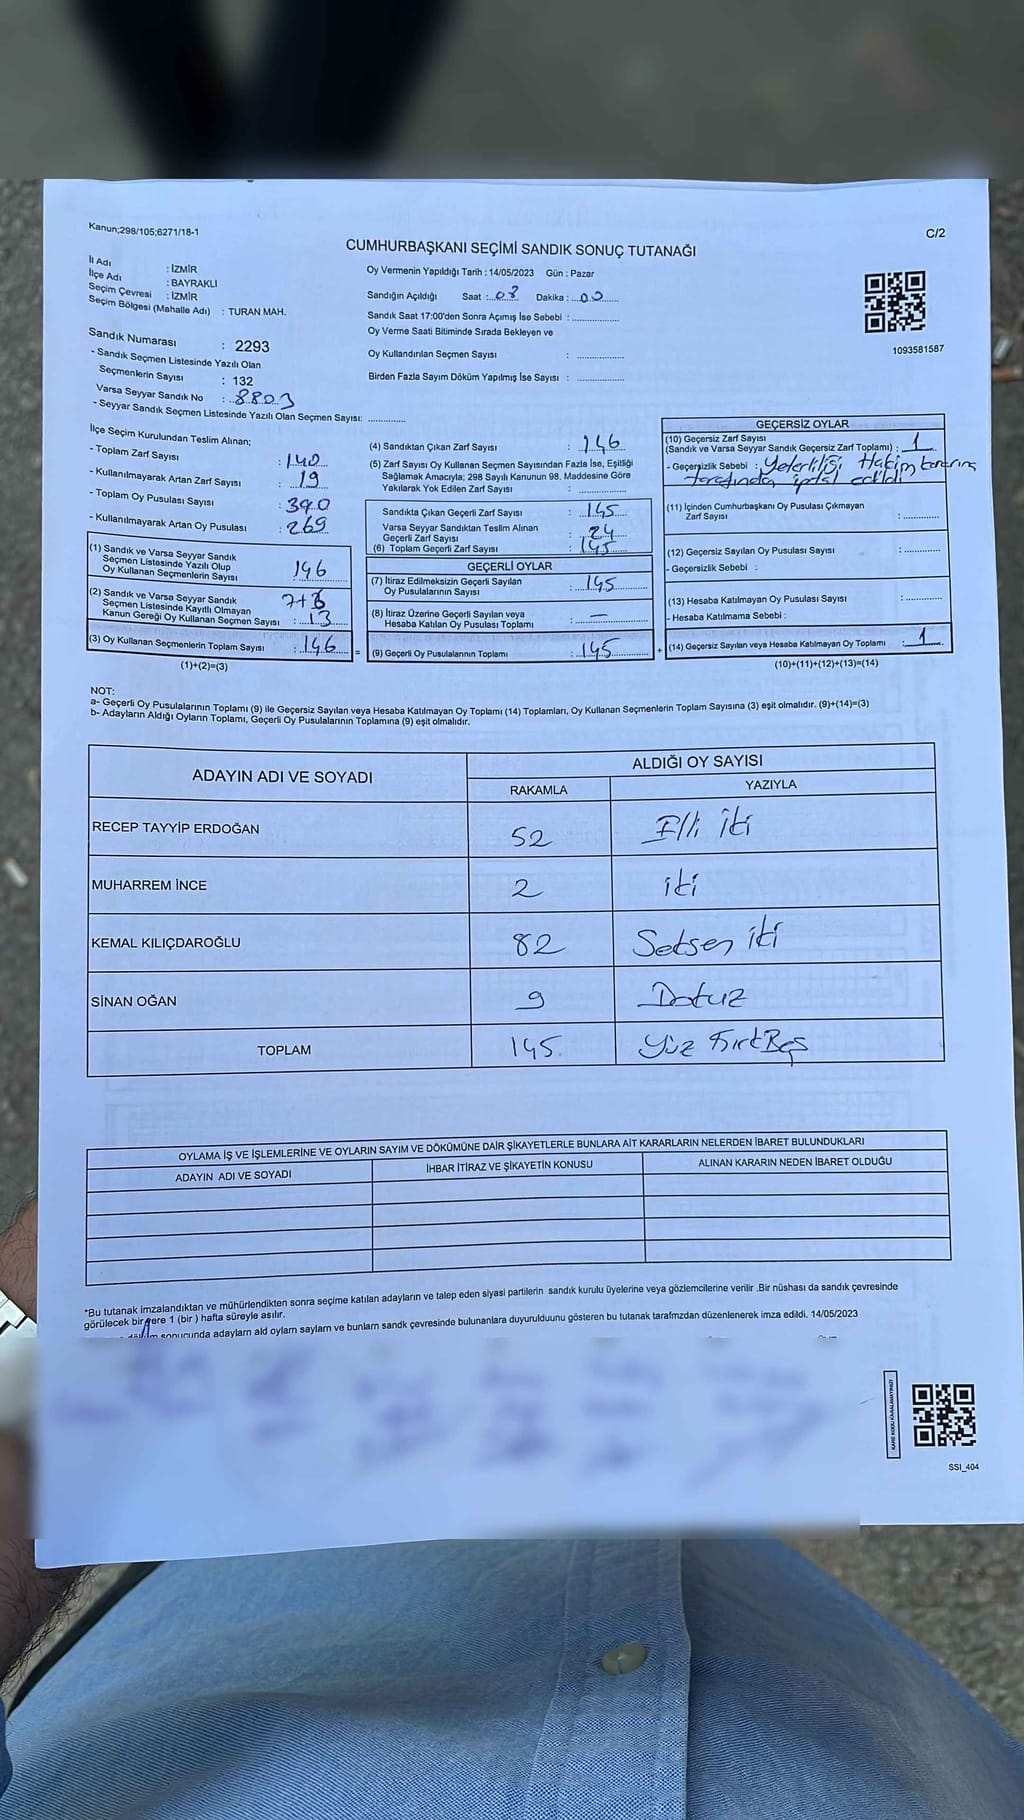 Kanun;298/105;6271/18-1
C/2
CUMHURBAŞKANI SEÇİMİ SANDIK SONUÇ TUTANAĞI
İl Adı : İZMİR
İlçe Adı : BAYRAKLI
Seçim Çevresi : İZMİR
Seçim Bölgesi (Mahalle Adı) : TURAN MAH.
Sandık Numarası : 2293
- Sandık Seçmen Listesinde Yazılı Olan
Seçmenlerin Sayısı : 132
Varsa Seyyar Sandık No : 8803
- Seyyar Sandık Seçmen Listesinde Yazılı Olan Seçmen Sayısı: ............
Oy Vermenin Yapıldığı Tarih : 14/05/2023 Gün : Pazar
Sandığın Açıldığı Saat : 08 Dakika : 00
Sandık Saat 17:00'den Sonra Açımış İse Sebebi : ...............
Oy Verme Saati Bitiminde Sırada Bekleyen ve
Oy Kullandırılan Seçmen Sayısı : ...............
Birden Fazla Sayım Döküm Yapılmış İse Sayısı : ...............
1093581587
İlçe Seçim Kurulundan Teslim Alınan;
- Toplam Zarf Sayısı : 140
- Kullanılmayarak Artan Zarf Sayısı : 19
- Toplam Oy Pusulası Sayısı : 390
- Kullanılmayarak Artan Oy Pusulası : 269
(1) Sandık ve Varsa Seyyar Sandık
Seçmen Listesinde Yazılı Olup
Oy Kullanan Seçmenlerin Sayısı 146
(2) Sandık ve Varsa Seyyar Sandık
Seçmen Listesinde Kayıtlı Olmayan
Kanun Gereği Oy Kullanan Seçmen Sayısı : 13
(3) Oy Kullanan Seçmenlerin Toplam Sayısı : 146
(1)+(2)=(3)
(4) Sandıktan Çıkan Zarf Sayısı : 146
(5) Zarf Sayısı Oy Kullanan Seçmen Sayısından Fazla İse, Eşitliği
Sağlamak Amacıyla; 298 Sayılı Kanunun 98. Maddesine Göre
Yakılarak Yok Edilen Zarf Sayısı : ...............
Sandıkta Çıkan Geçerli Zarf Sayısı : 145
Varsa Seyyar Sandıktan Teslim Alınan
Geçerli Zarf Sayısı : 24
(6) Toplam Geçerli Zarf Sayısı : 145
GEÇERLİ OYLAR
(7) İtiraz Edilmeksizin Geçerli Sayılan
Oy Pusulalarının Sayısı : 145
(8) İtiraz Üzerine Geçerli Sayılan veya
Hesaba Katılan Oy Pusulası Toplamı : —
= (9) Geçerli Oy Pusulalarının Toplamı : 145
GEÇERSİZ OYLAR
(10) Geçersiz Zarf Sayısı
(Sandık ve Varsa Seyyar Sandık Geçersiz Zarf Toplamı) : 1
- Geçersizlik Sebebi : Yeterliliği Hakim kararına
tarafından iptal edildi
(11) İçinden Cumhurbaşkanı Oy Pusulası Çıkmayan
Zarf Sayısı : ............
(12) Geçersiz Sayılan Oy Pusulası Sayısı : ............
- Geçersizlik Sebebi :
(13) Hesaba Katılmayan Oy Pusulası Sayısı : ............
- Hesaba Katılmama Sebebi :
+ (14) Geçersiz Sayılan veya Hesaba Katılmayan Oy Toplamı : 1
(10)+(11)+(12)+(13)=(14)
NOT:
a- Geçerli Oy Pusulalarının Toplamı (9) ile Geçersiz Sayılan veya Hesaba Katılmayan Oy Toplamı (14) Toplamları, Oy Kullanan Seçmenlerin Toplam Sayısına (3) eşit olmalıdır. (9)+(14)=(3)
b- Adayların Aldığı Oyların Toplamı, Geçerli Oy Pusulalarının Toplamına (9) eşit olmalıdır.
ADAYIN ADI VE SOYADI ALDIĞI OY SAYISI
RAKAMLA YAZIYLA
RECEP TAYYİP ERDOĞAN 52 Elli iki
MUHARREM İNCE 2 iki
KEMAL KILIÇDAROĞLU 82 Seksen iki
SİNAN OĞAN 9 Dokuz
TOPLAM 145 Yüz KırkBeş
OYLAMA İŞ VE İŞLEMLERİNE VE OYLARIN SAYIM VE DÖKÜMÜNE DAİR ŞİKAYETLERLE BUNLARA AİT KARARLARIN NELERDEN İBARET BULUNDUKLARI
ADAYIN ADI VE SOYADI İHBAR İTİRAZ VE ŞİKAYETİN KONUSU ALINAN KARARIN NEDEN İBARET OLDUĞU
*Bu tutanak imzalandıktan ve mühürlendikten sonra seçime katılan adayların ve talep eden siyasi partilerin sandık kurulu üyelerine veya gözlemcilerine verilir .Bir nüshası da sandık çevresinde
görülecek bir yere 1 (bir ) hafta süreyle asılır.
sonucunda adayların ald oyların sayları ve bunların sandk çevresinde bulunanlara duyurulduunu gösteren bu tutanak tarafmzdan düzenlenerek imza edildi. 14/05/2023
KARE KODU KARALAMAYINIZ!
SSI_404